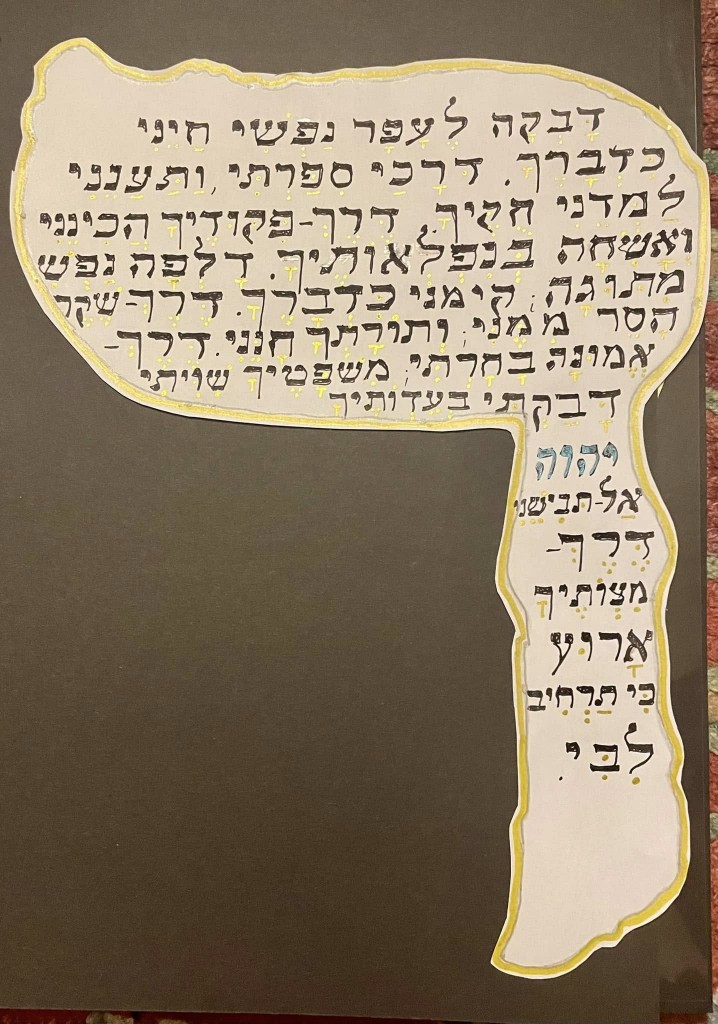 דבקה לעפר נפשי חיני
כדברך. דרכי ספרתי, ותענני
למדני חקיך. דרך-פקודיך הבינני
ואשחה בנפלאותיך. דלפה נפש
מתוגה; קימני כדברך. דרך-שקר
הסר ממני; ותורתך חנני. דרך-
אמונה בחרתי; משפטיך שויתי
דבקתי בעדותיך
יהוה
אל-תבישני
דרך-
מצותיך
ארוץ
כי תרחיב
לבי.